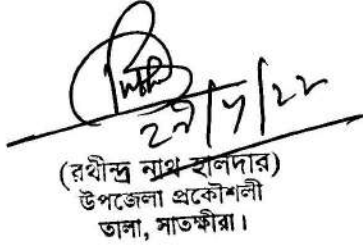 (রথীন্দ্র নাথ হালদার)
উপজেলা প্রকৌশলী
তালা, সাতক্ষীরা।